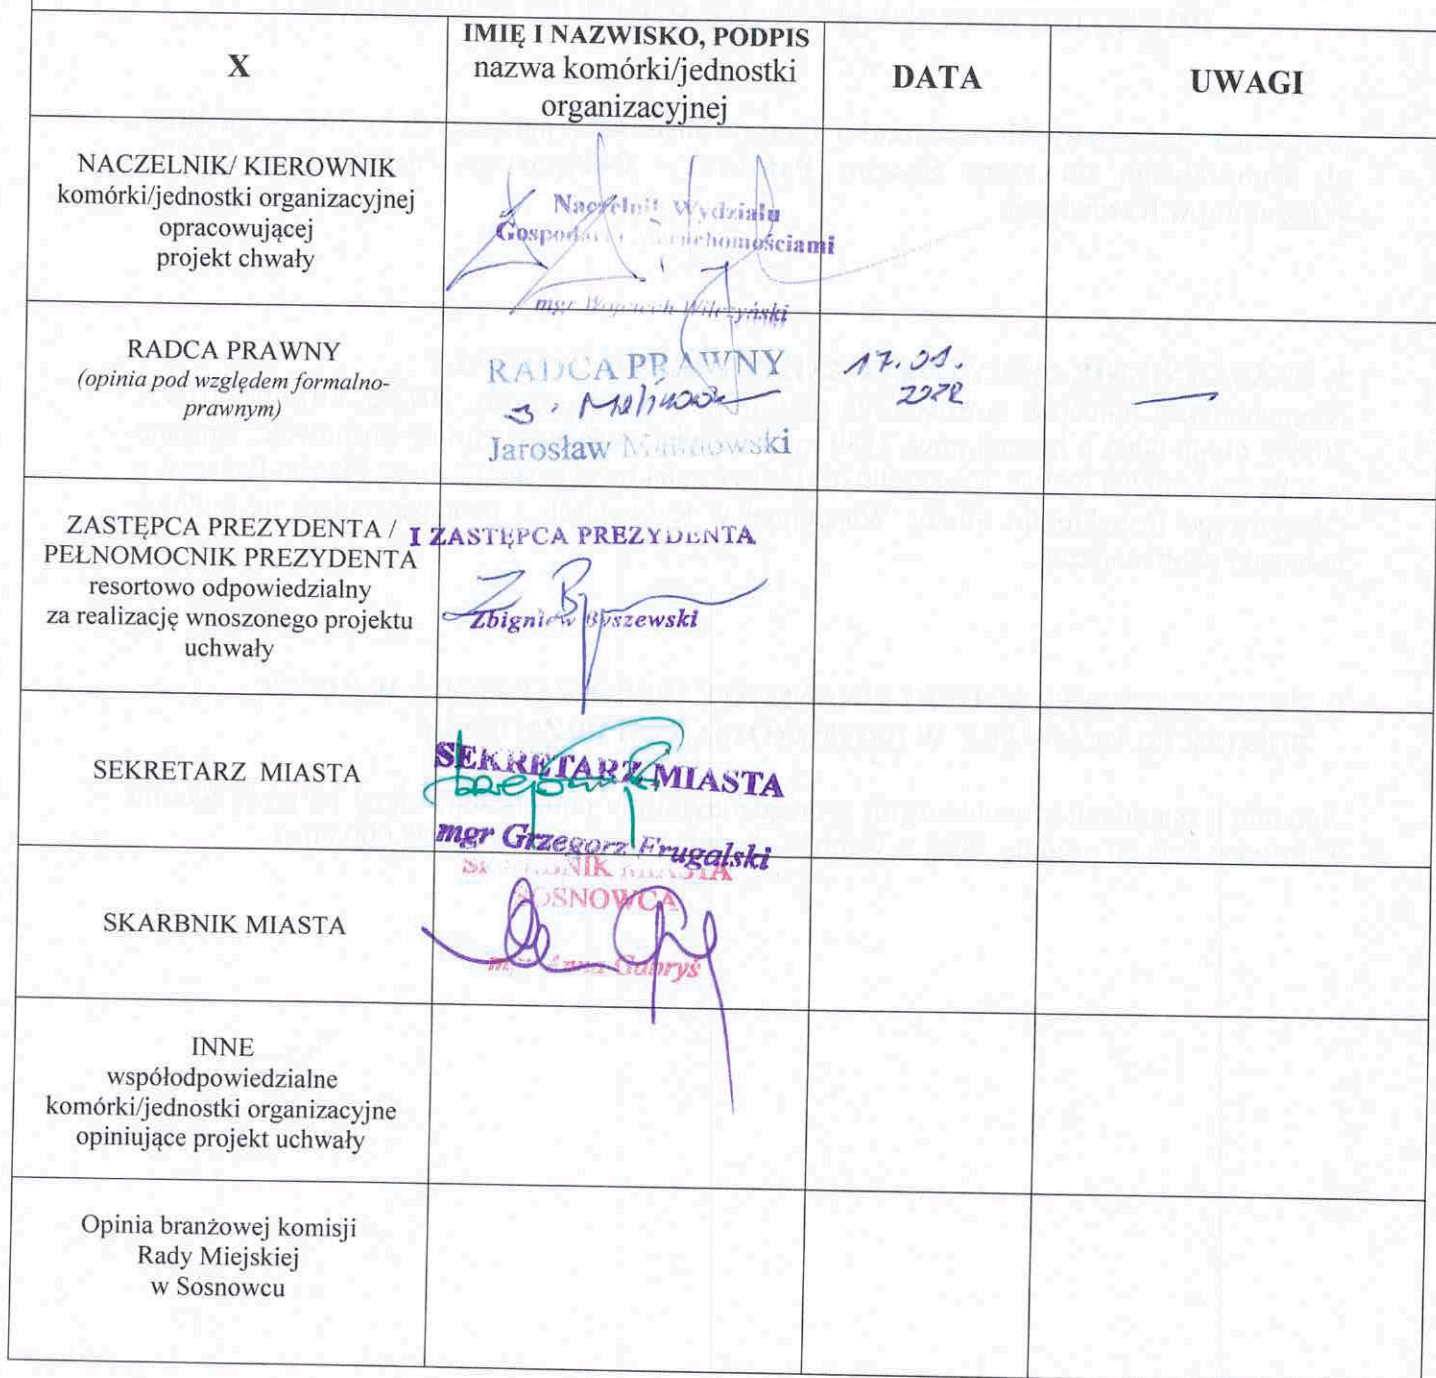 X
IMIĘ I NAZWISKO, PODPIS
nazwa komórki/jednostki
organizacyjnej
DATA
UWAGI
NACZELNIK/ KIEROWNIK
komórki/jednostki organizacyjnej
opracowującej
projekt chwały
Naczelnik Wydziału
mgr Wojciech Wilczyński
RADCA PRAWNY
(opinia pod względem formalno-
prawnym)
RADCA PRAWNY
Jarosław Malinowski
17.01.
2022
ZASTĘPCA PREZYDENTA /
PEŁNOMOCNIK PREZYDENTA
resortowo odpowiedzialny
za realizację wnoszonego projektu
uchwały
I ZASTĘPCA PREZYDENTA
Zbigniew Byszewski
SEKRETARZ MIASTA
SEKRETARZ MIASTA
mgr Grzegorz Frugalski
SKARBNIK MIASTA
SKARBNIK MIASTA
SOSNOWCA
mgr Anna Gabryś
INNE
współodpowiedzialne
komórki/jednostki organizacyjne
opiniujące projekt uchwały
Opinia branżowej komisji
Rady Miejskiej
w Sosnowcu